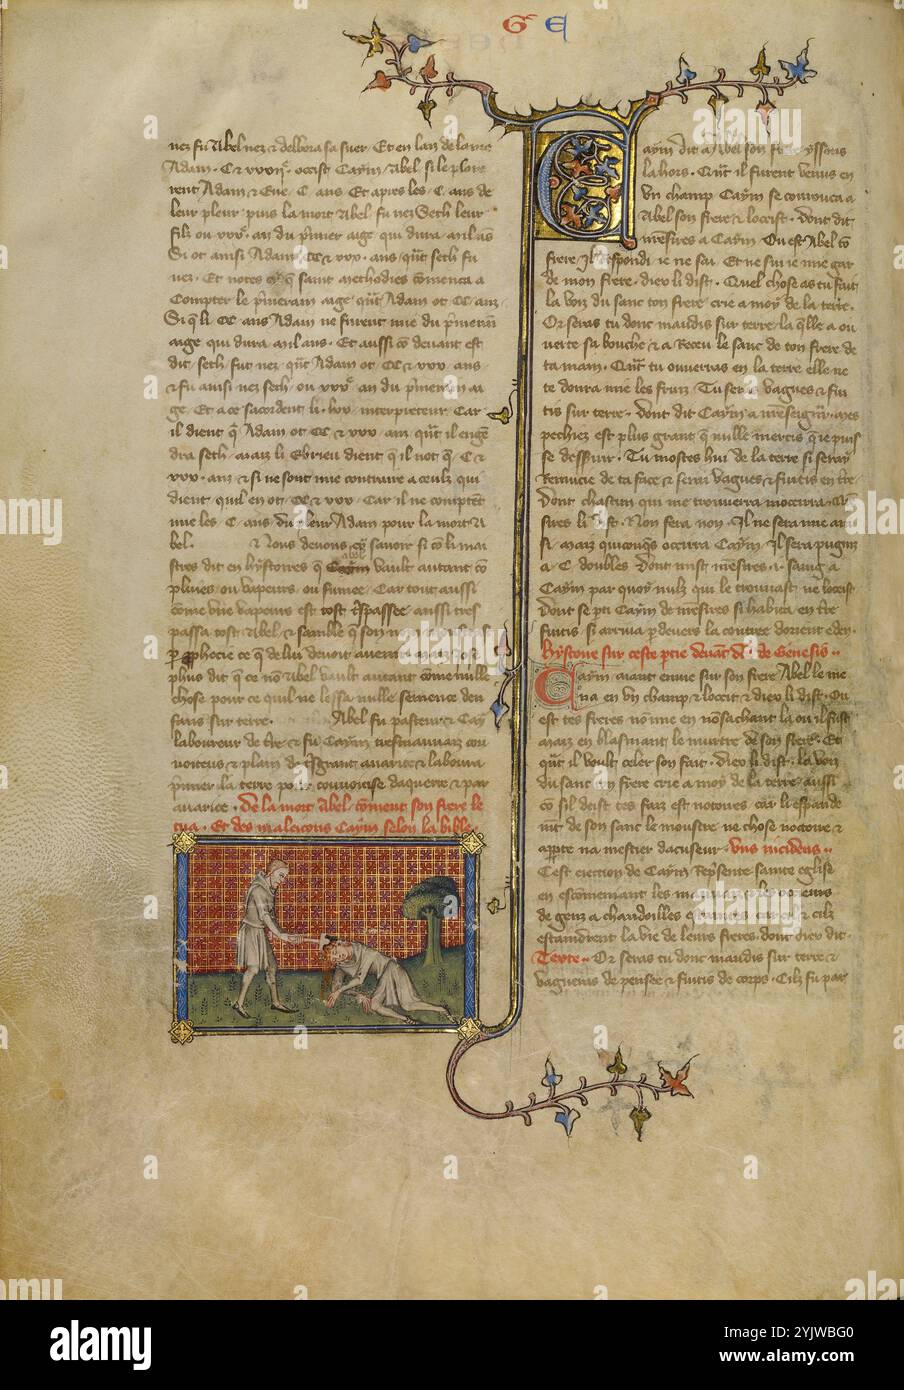 GE
nez fu Abel nez & delbora sa suer. Et en lan de lorine
Adam. C & xxx. occist Caym Abel si le ploue
rent Adam & Eue. C. ans Et apres les. C. ans de
leur pleur puis la mort Abel fu nez Seth leur
filz ou an du pmier aige qui dura mil ans
Si ot ainsi Adam CC & xxx. ans. qnt seth fu
nez. Et notes cy q saint methodies comenca a
Compter le pmeram aige qnt Adam ot CC anz.
Si q li CC ans Adam ne furent mie du pmeram
aige qui dura mil ans. Et aussi co deuant est
dit seth fut nez qnt Adam ot CC & xxx ans
& fu ainsi nez seth ou an du pmeram ai
ge. Et a ce sacordent li. lxx. interpreteur Car
il dient q Adam ot CC & xxx. an qnt il enge
dra seth. maiz li Ebrieu dient q il not q C &
xxx. an. & si ne sont mie contraire a ceulz qui
dient quil en ot. CC & xxx. Car il ne comptet
mie les C. ans du pleur Adam pour la mort A
bel. & Nous deuons cy sauoir si co li mai
stres dit en hystoires q abel vault autant co
pluies ou vapeurs. ou fumee. Car tout aussi
come vne vapeurs est tost tspassee aussi tres
passa tost Abel. & semble q son nom
pphecie ce q de lui deuoit auenir.
phus dit q ce no Abel vault autant come nulle
chose pour ce quil ne lessa nulle semence den
fans sur terre. Abel fu pasteur & Cay
laboureur de tre & fu Caym tresmauuaiz con
uoiteus & plain de tsgrant auarice & laboura
pmier la terre pour conuoitise daquerre & par
auarice. De la mort Abel. coment son frere le
tua. Et des maleicons Caym selon la bible.
Caym dit a Abel son frere yssons
la hors. Qnt il furent venus en
vn champ Caym se couronca a
Abel son frere & loccist. dont dit
nrestres a Caym Ou est Abel to
frere. Il Respondi ie ne sai. Et ne sui ie mie gar
de mon frere. dieu li dist. Quel chose as tu fait
la voiz du sanc ton frere crie a moy de la terre.
Or seras tu donc maudis sur terre. la qlle a ou
uerte sa bouche & a Receu le sanc de ton frere de
ta main. Qnt tu ouuerras en la terre elle ne
te donra mie les fruiz. Tu seras vagues & fui
tis sur terre. dont dit Caym a nreseignr. mes
pechiez est plus grant q nulle mercis q ie puis
se desseruir. Tu mostes hui de la terre si seray
Remucie de ta face & serai vagues & fuitis en tre
Dont chascun qui me trouuerra mocirra.
stres li dist. Non fera non. Il ne sera mie ain
si. maiz quiconqs occirra Caym. Il sera pugniz
a. C. doubles. Dont mist nrestres. i. saing a
Caym par quoy nulz qui le trouuast ne loceist
Dont se pti Caym de nrestres si habita en tre
fuitis si arriua p deuers la contree dorient eden.
hystoire sur ceste ptie deuant dte de Genesis
Caym. aiant enuie sur son frere Abel le me
na en vn champ & loccit & dieu li dist. Ou
est tes freres no mie en nosachant la ou il fust
maiz en blasmant le murtre de son frere. Et
qnt il voult celer son fait. dieu li dist. la voiz
du sanc ton frere crie a moy de la terre. aussi
co sil deist tes faiz est notoires. car li espande
mt de son sanc le moustre ne chose notoire &
apperte na mestier dacuseur. vns incidens
Cest eiection de Caym Represente sainte eglise
en escomeniant les
de genz a chandoilles
estaindrent la vie de leurs freres. dont dieu dit.
Texte. Or seras tu donc maudis sur terre &
vagueras de pensee & fuitis de corps. Cilz fu par
a
alamy
Image ID: 2YJWBG0
www.alamy.com